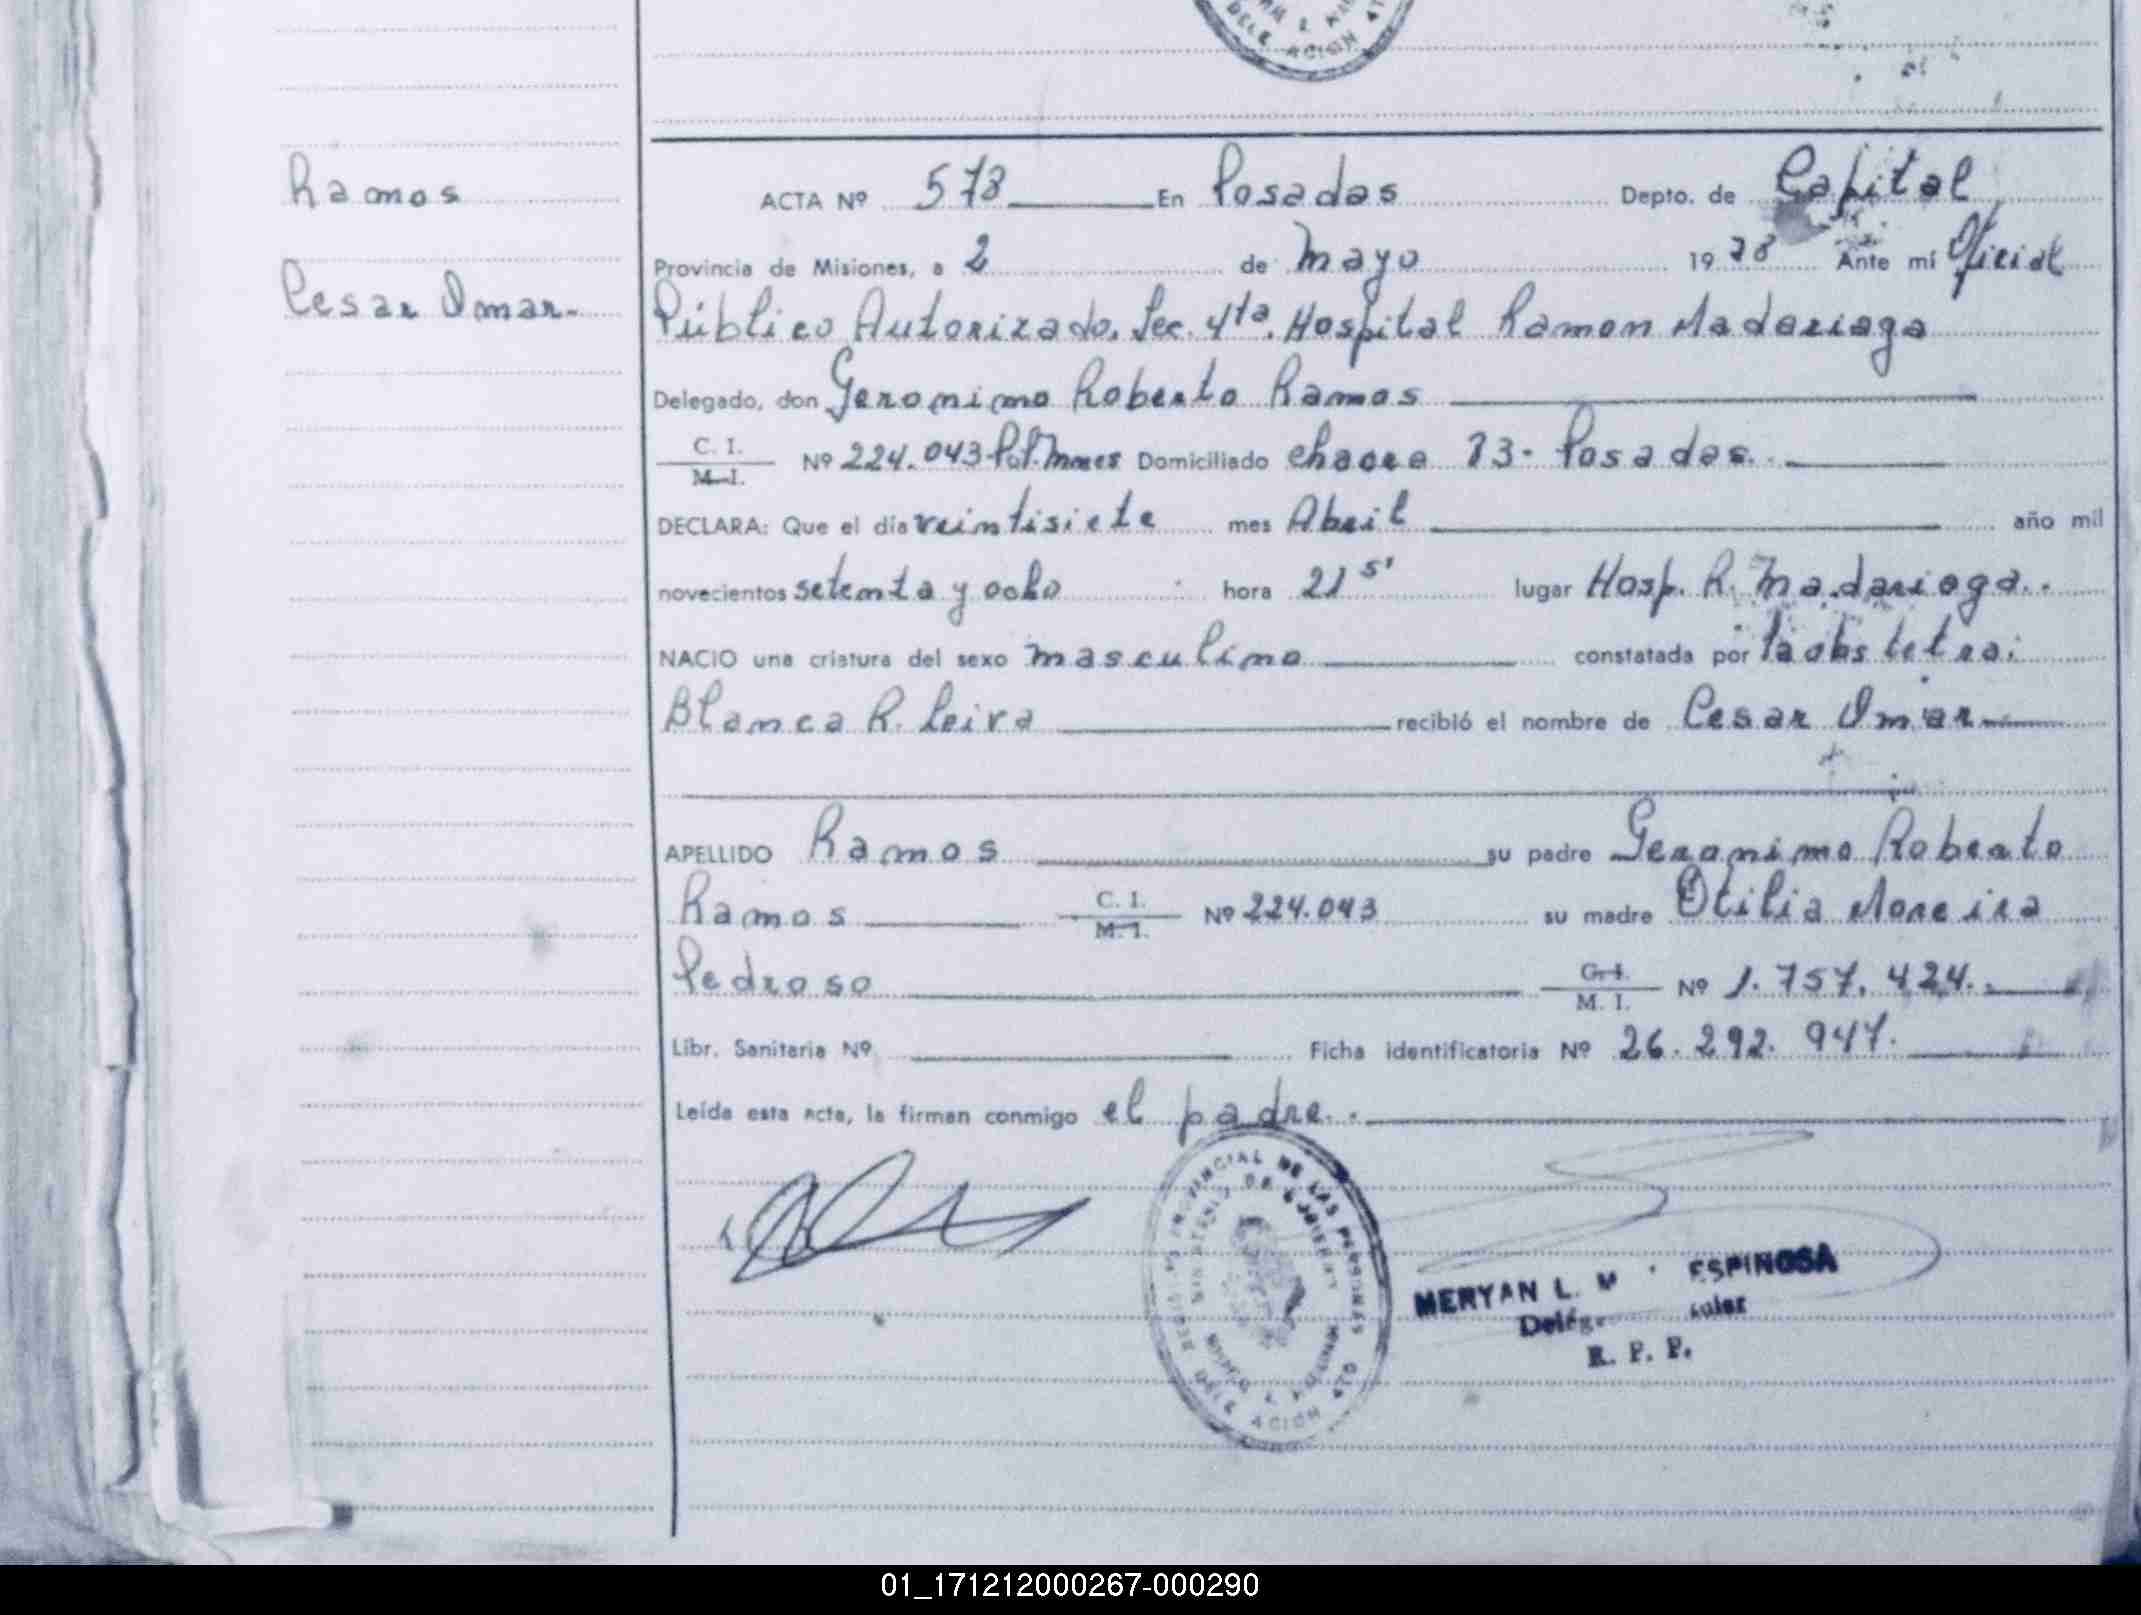 DELEGACION 4TO
Ramos
Cesar Omar.
ACTA Nº 573 En Posadas Depto. de Capital
Provincia de Misiones, a 2 de Mayo 1978 Ante mí Oficial
Público Autorizado. Sec. 4ta. Hospital Ramon Madariaga
Delegado, don Geronimo Roberto Ramos
C. I.
M. I. Nº 224.043 Pol. Mnes Domiciliado chacra 73- Posadas.
DECLARA: Que el día veintisiete mes Abril año mil
novecientos setenta y ocho hora 21 51 lugar Hosp. R. Madariaga.
NACIO una criatura del sexo masculino constatada por la obstetra:
Blanca R. Leiva recibió el nombre de Cesar Omar
APELLIDO Ramos su padre Geronimo Roberto
Ramos C. I. M. I. Nº 224.043 su madre Otilia Moreira
Pedroso C. I. M. I. Nº 1.757.424.
Libr. Sanitaria Nº Ficha identificatoria Nº 26.292.947.
Leída esta acta, la firman conmigo el padre.
PROVINCIAL DE LAS PERSONAS
DELEGACION 4TO
MERYAN L. M ESPINOSA
R. P. P.
01_171212000267-000290